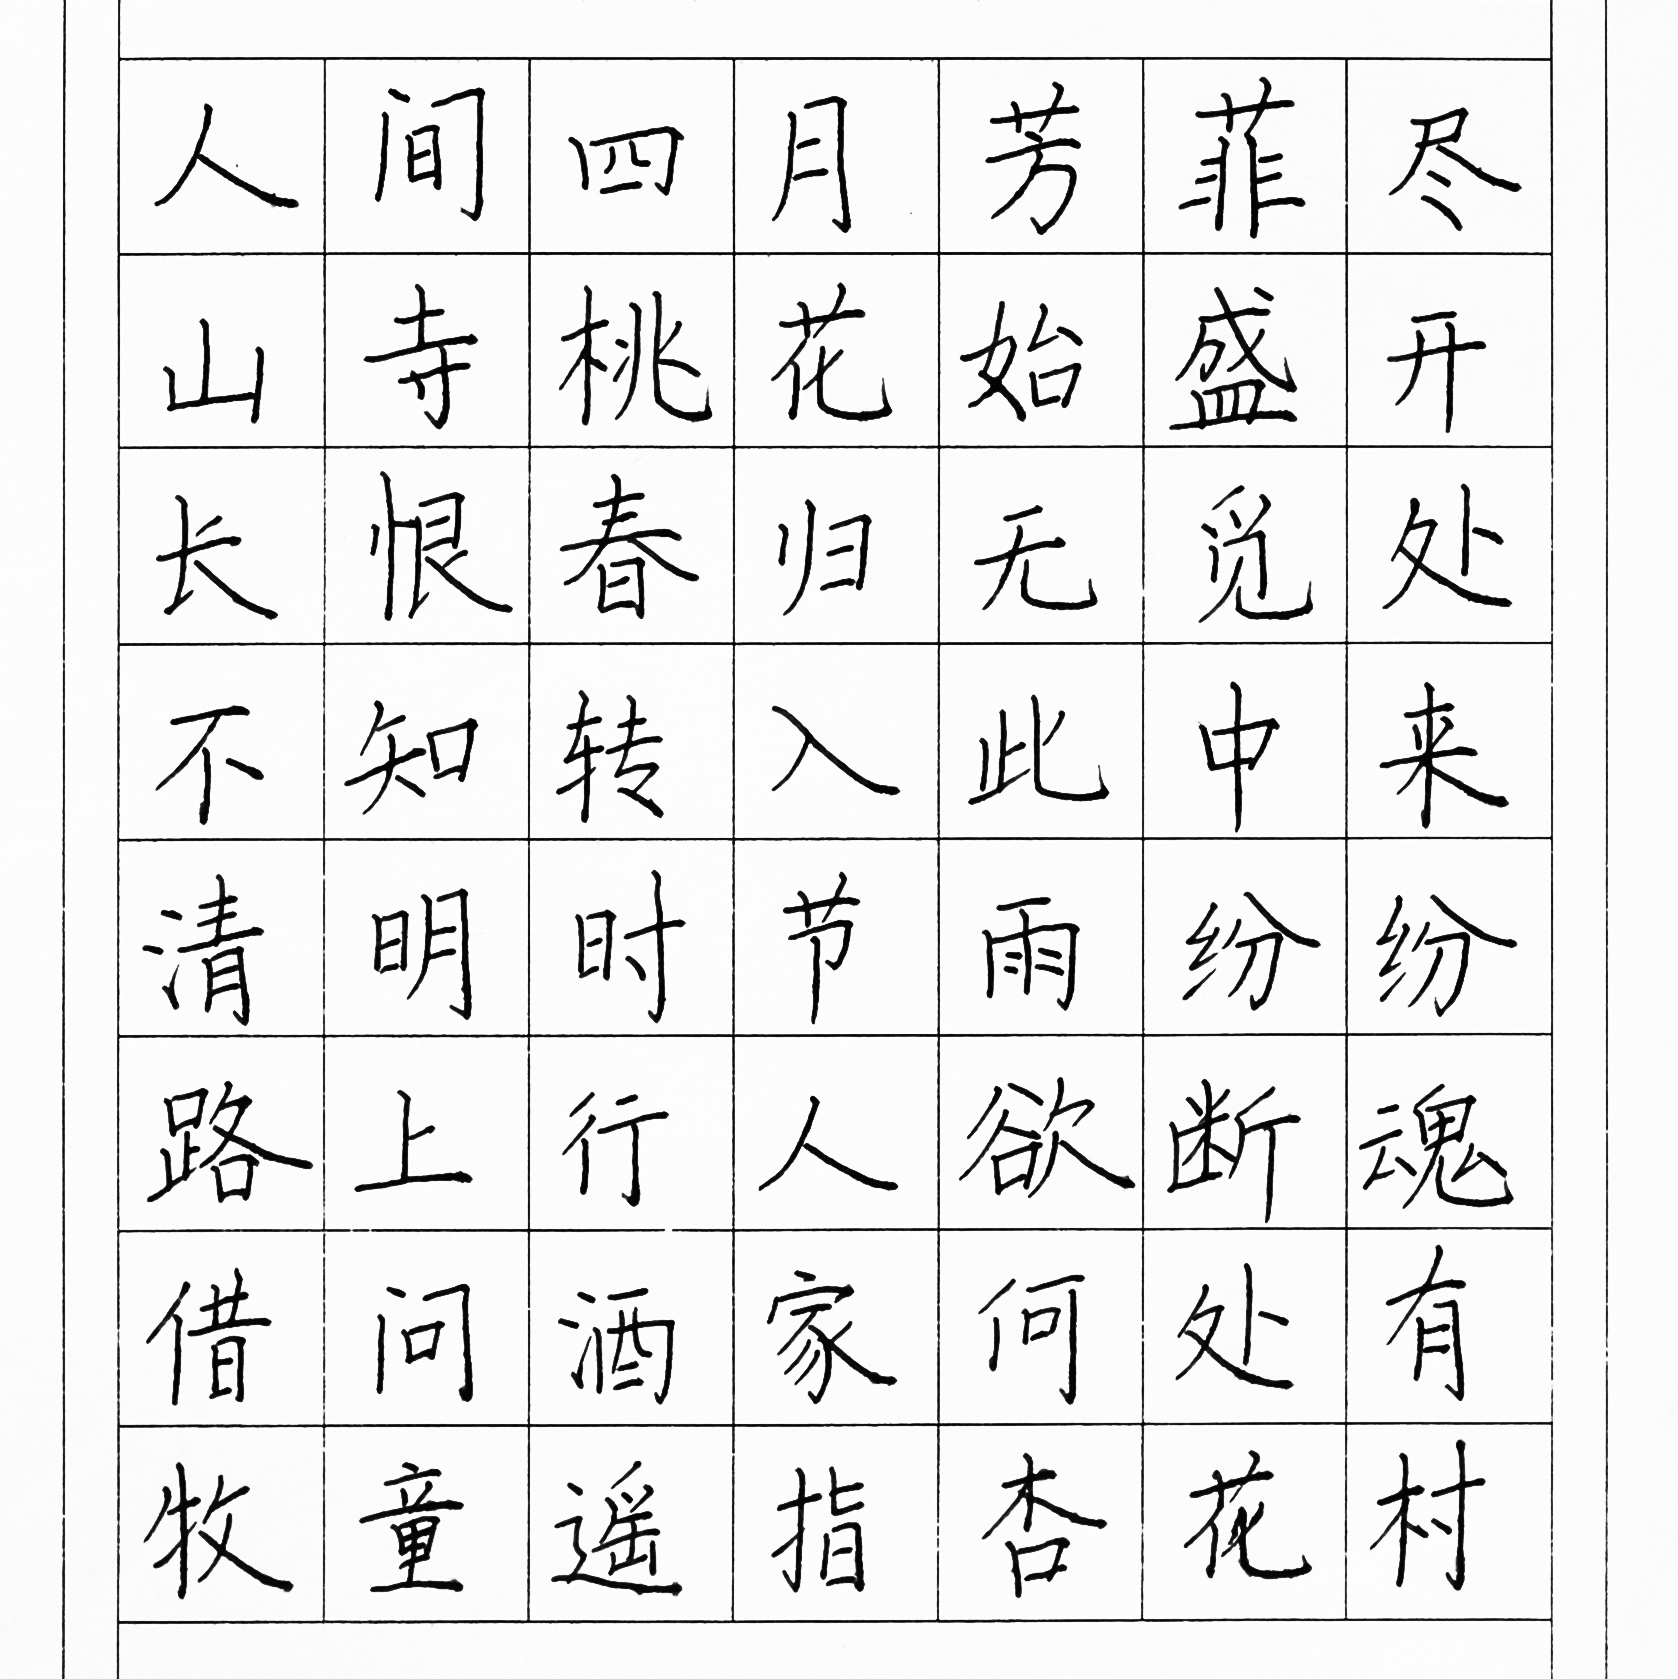 人间四月芳菲尽
山寺桃花始盛开
长恨春归无觅处
不知转入此中来
清明时节雨纷纷
路上行人欲断魂
借问酒家何处有
牧童遥指杏花村